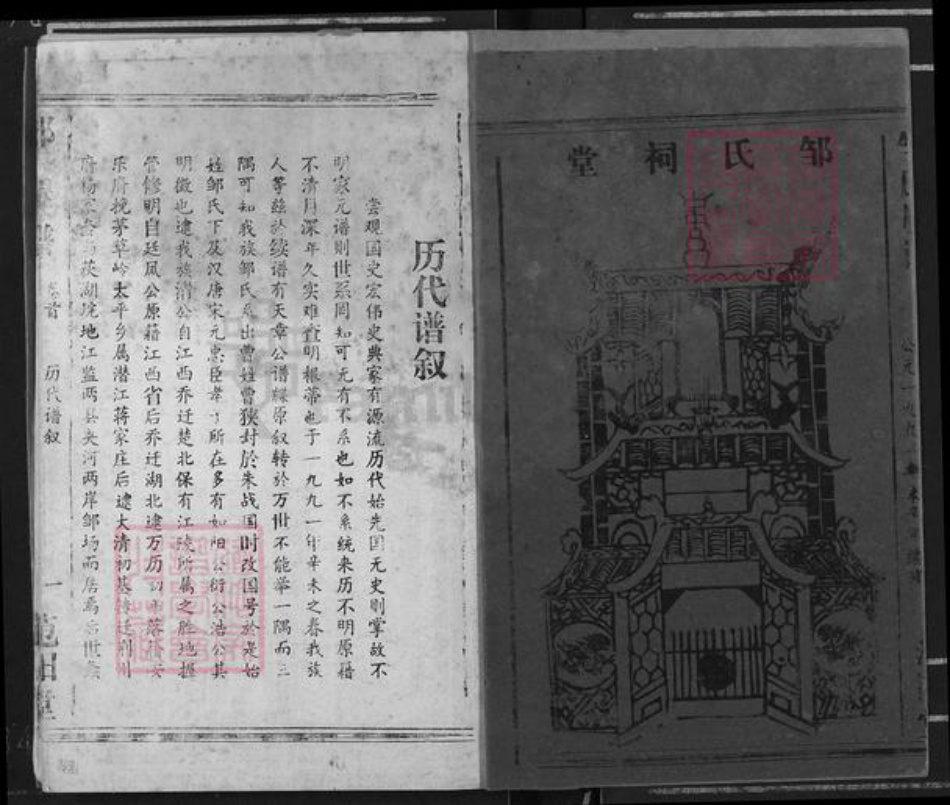 邹氏祠堂
历代谱叙
尝观国史宏伟史典家有源流历代始先国无史则掌故不
明家无谱则世系罔知可无有不系也如不系统来历不明原籍
不清月深年久实难查明根蒂也于一九九一年辛未之春我族
人等兹於续谱有天章公谱牒原叙转於万世不能举一隅而三
隅可知我族邹氏系出曹姓曹狭封於朱战国时改国号於是始
姓邹氏下及汉唐宋元忠臣孝子所在多有如阳公衍公浩公其
明徵也逮我族清公自江西乔迁楚北保有江陵所属之胜地握
管修明自廷凤公原籍江西省后乔迁湖北逮万历初年落
乐府挽茅草岭太平乡属潜江蒋家庄后逮大清初基转迁荆州
府杨家 茭湖垸地江监两县夹河两岸邹场而居焉后世
卷首
历代谱叙
一
范阳堂